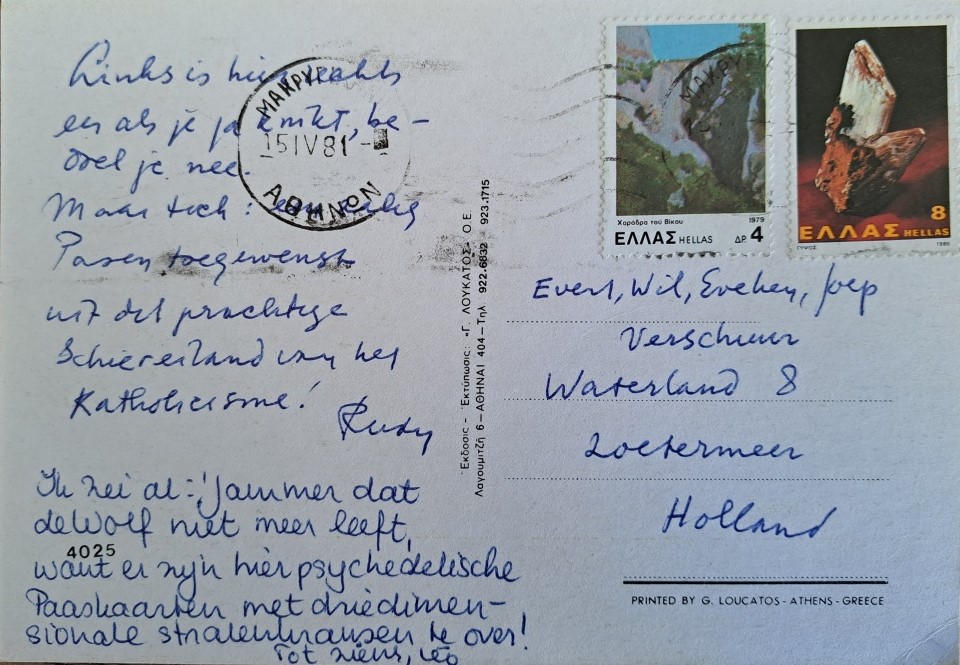 Links is hier rechts
en als je ja knikt, be-
doel je nee.
Maar toch: een zalig
Pasen toegewenst
uit dit prachtige
Schiereiland van het
Katholicisme!
Rudy
Ik zei al: 'Jammer dat
de Wolf niet meer leeft,
want er zijn hier psychedelische
Paaskaarten met driedimen-
sionale stralenkransen te over!
Tot ziens, Leo
4025
ΜΑΚΡΥΓΙ
15 IV 81 -
ΑΘΗΝΩΝ
Ἔκδοσις - Ἐκτύπωσις: «Γ. ΛΟΥΚΑΤΟΣ» Ο.Ε.
Λαγουμιτζῆ 6 – ΑΘΗΝΑΙ 404 – Τηλ. 922.6832 923.1715
ΜΑΚΡΥΓΙ
Χαράδρα τοῦ Βίκου 1979
ΕΛΛΑΣ HELLAS ΔΡ. 4
8
ΕΛΛΑΣ HELLAS
ΓΥΨΟΣ 1980
Evert, Wil, Eveken, Joep
Verschuur
Waterland 8
Zoetermeer
Holland
PRINTED BY G. LOUCATOS - ATHENS - GREECE